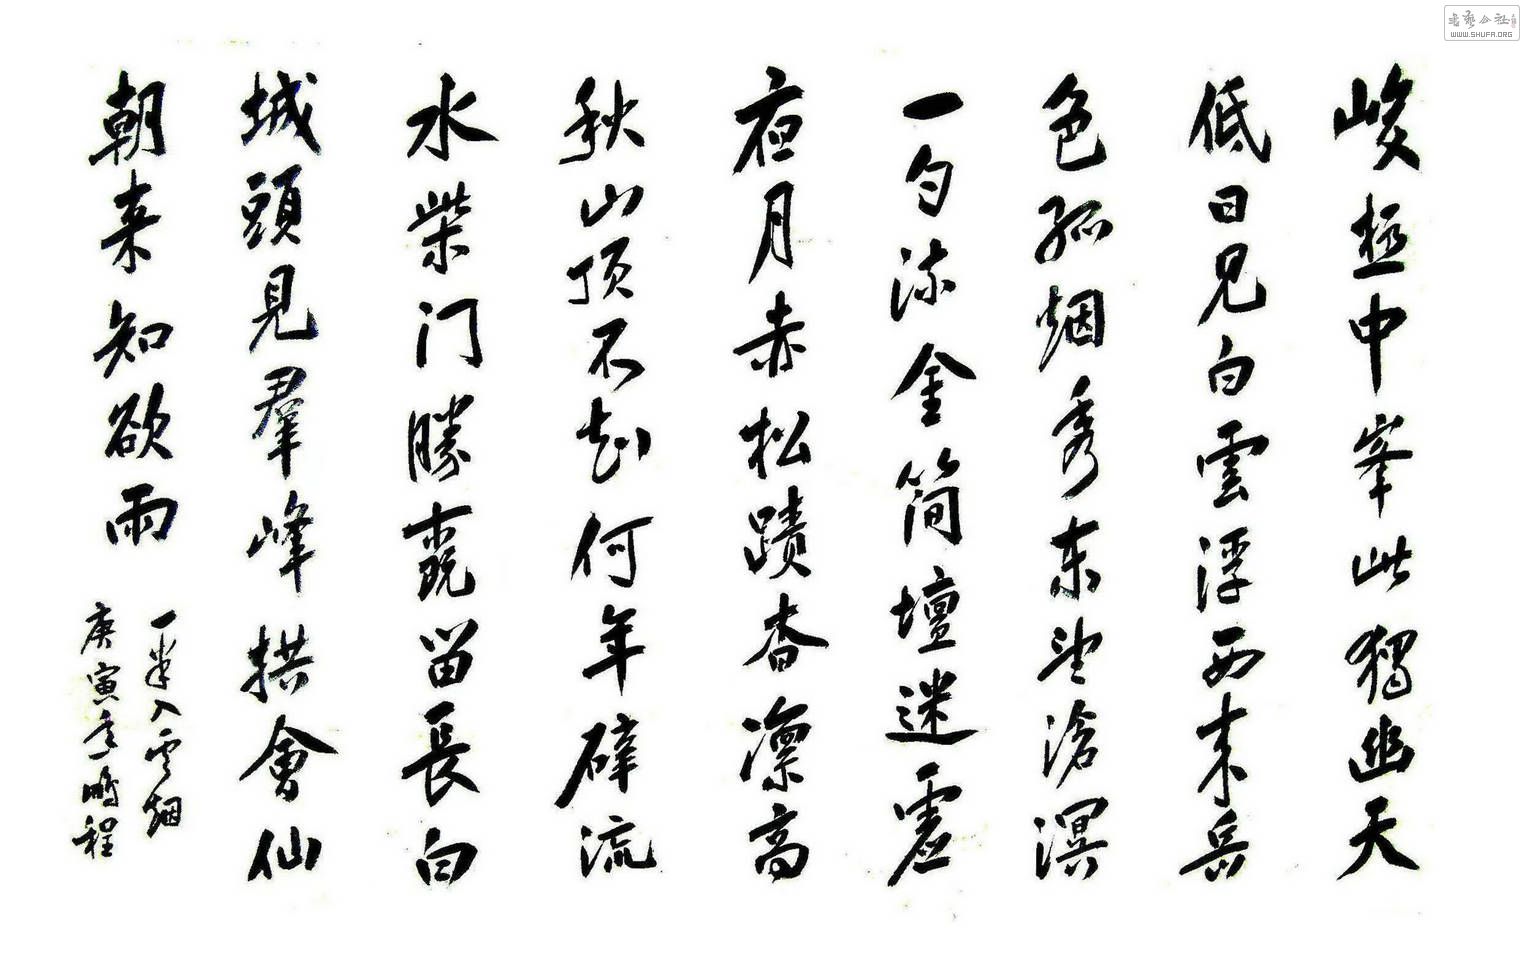 峻极中峯此獨幽天
低日見白雲浮西来岳
色孤烟秀東望滄溟
一勺流金简壇迷虚
夜月赤松蹟杳凛高
秋山顶不知何年礔流
水柴门勝槩留長白
城頭見羣峰拱會仙
朝来知欲雨
一半入雲烟
庚寅年 程
書藝公社
WWW.SHUFA.ORG